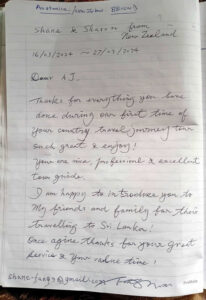 Australia / New Zealand
Shane & Sharon from
New Zealand
16/03/2024 — 27/03/2024
Dear A.J.
Thanks for everything you have
done during our first time of
Your country travel journey turn
Such great & enjoy!
You are nice, professional & excellent
tour guide.
I am happy to introduce you to
My friends and family for their
travelling to Sri Lanka!
Once agine thanks for your great
Service & your value time!